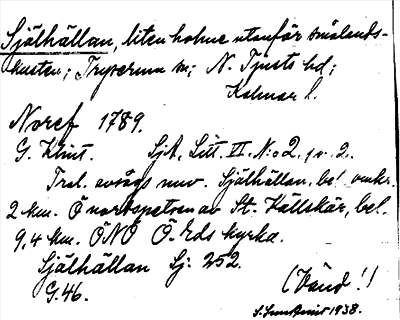 Själhällan, liten holme utanför smålands-
kusten; Tryserum sn; N. Tjusts hd;
Kalmar l.
Noref 1789.
G. Klint. SjA, Litt. VI. N:o 2, s. 2.
Trol. avsågs nuv. Själhällan, bel. omkr.
2 km. Ö nordspetsen av St. Källskär, bel.
9,4 km. ÖNÖ Ö. Eds kyrka.
Själhällan Sj. 252.
G.46.
(Vänd!)
1938.